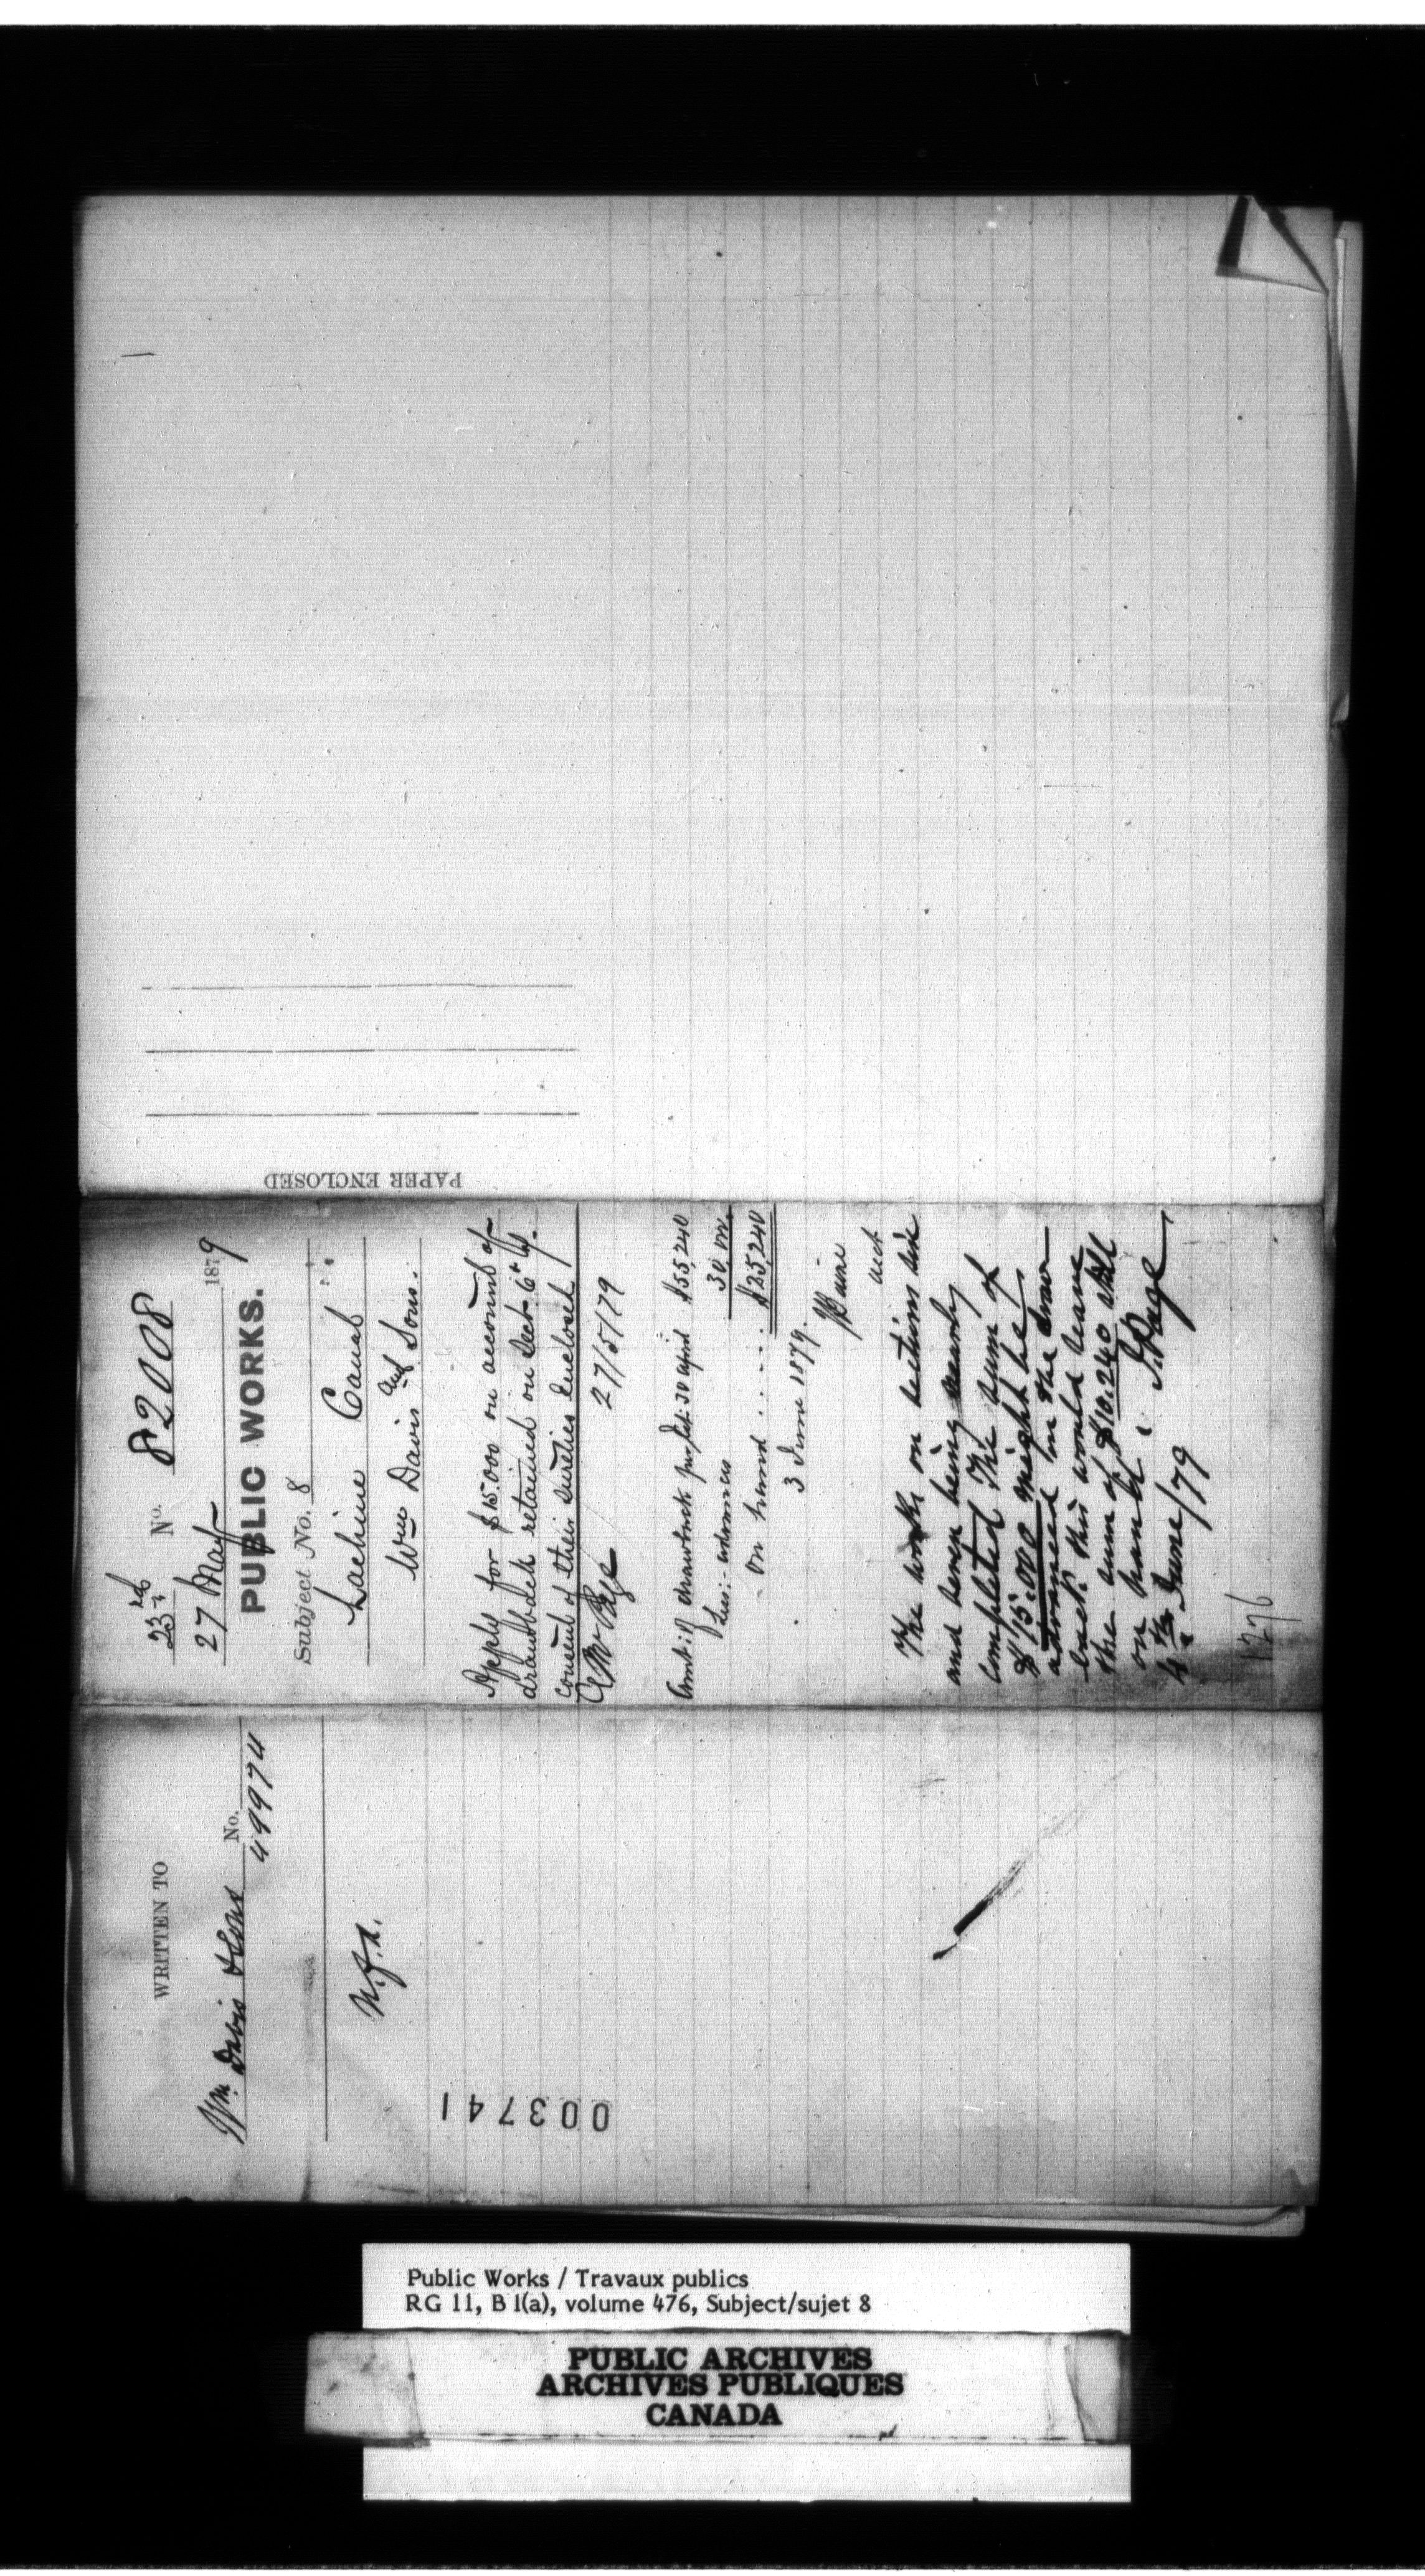 WRITTEN TO
Wm. Davis & Sons No. 49974
N.J.A.
003741
23rd No. 82008
27 May 1879
PUBLIC WORKS.
Subject No. 8
Lachine Canal
Wm Davis and Sons.
Apply for $15.000 on account of
drawback retained on Sect. 6 & 7.
consent of their sureties enclosed
27/5/79
Amt. of drawback 30 April $55,240
Less:- advances 30,000
on hand .... $25,240
3 June 1879.
acct
The works on sections six
and seven being nearly
completed the sum of
$15.000 might be
advanced on the draw
back this would leave
the sum of $10.240 still
on hand. J. Page
4th June/79
1276
PAPER ENCLOSED
Public Works / Travaux publics
RG 11, B 1(a), volume 476, Subject/sujet 8
PUBLIC ARCHIVES
ARCHIVES PUBLIQUES
CANADA